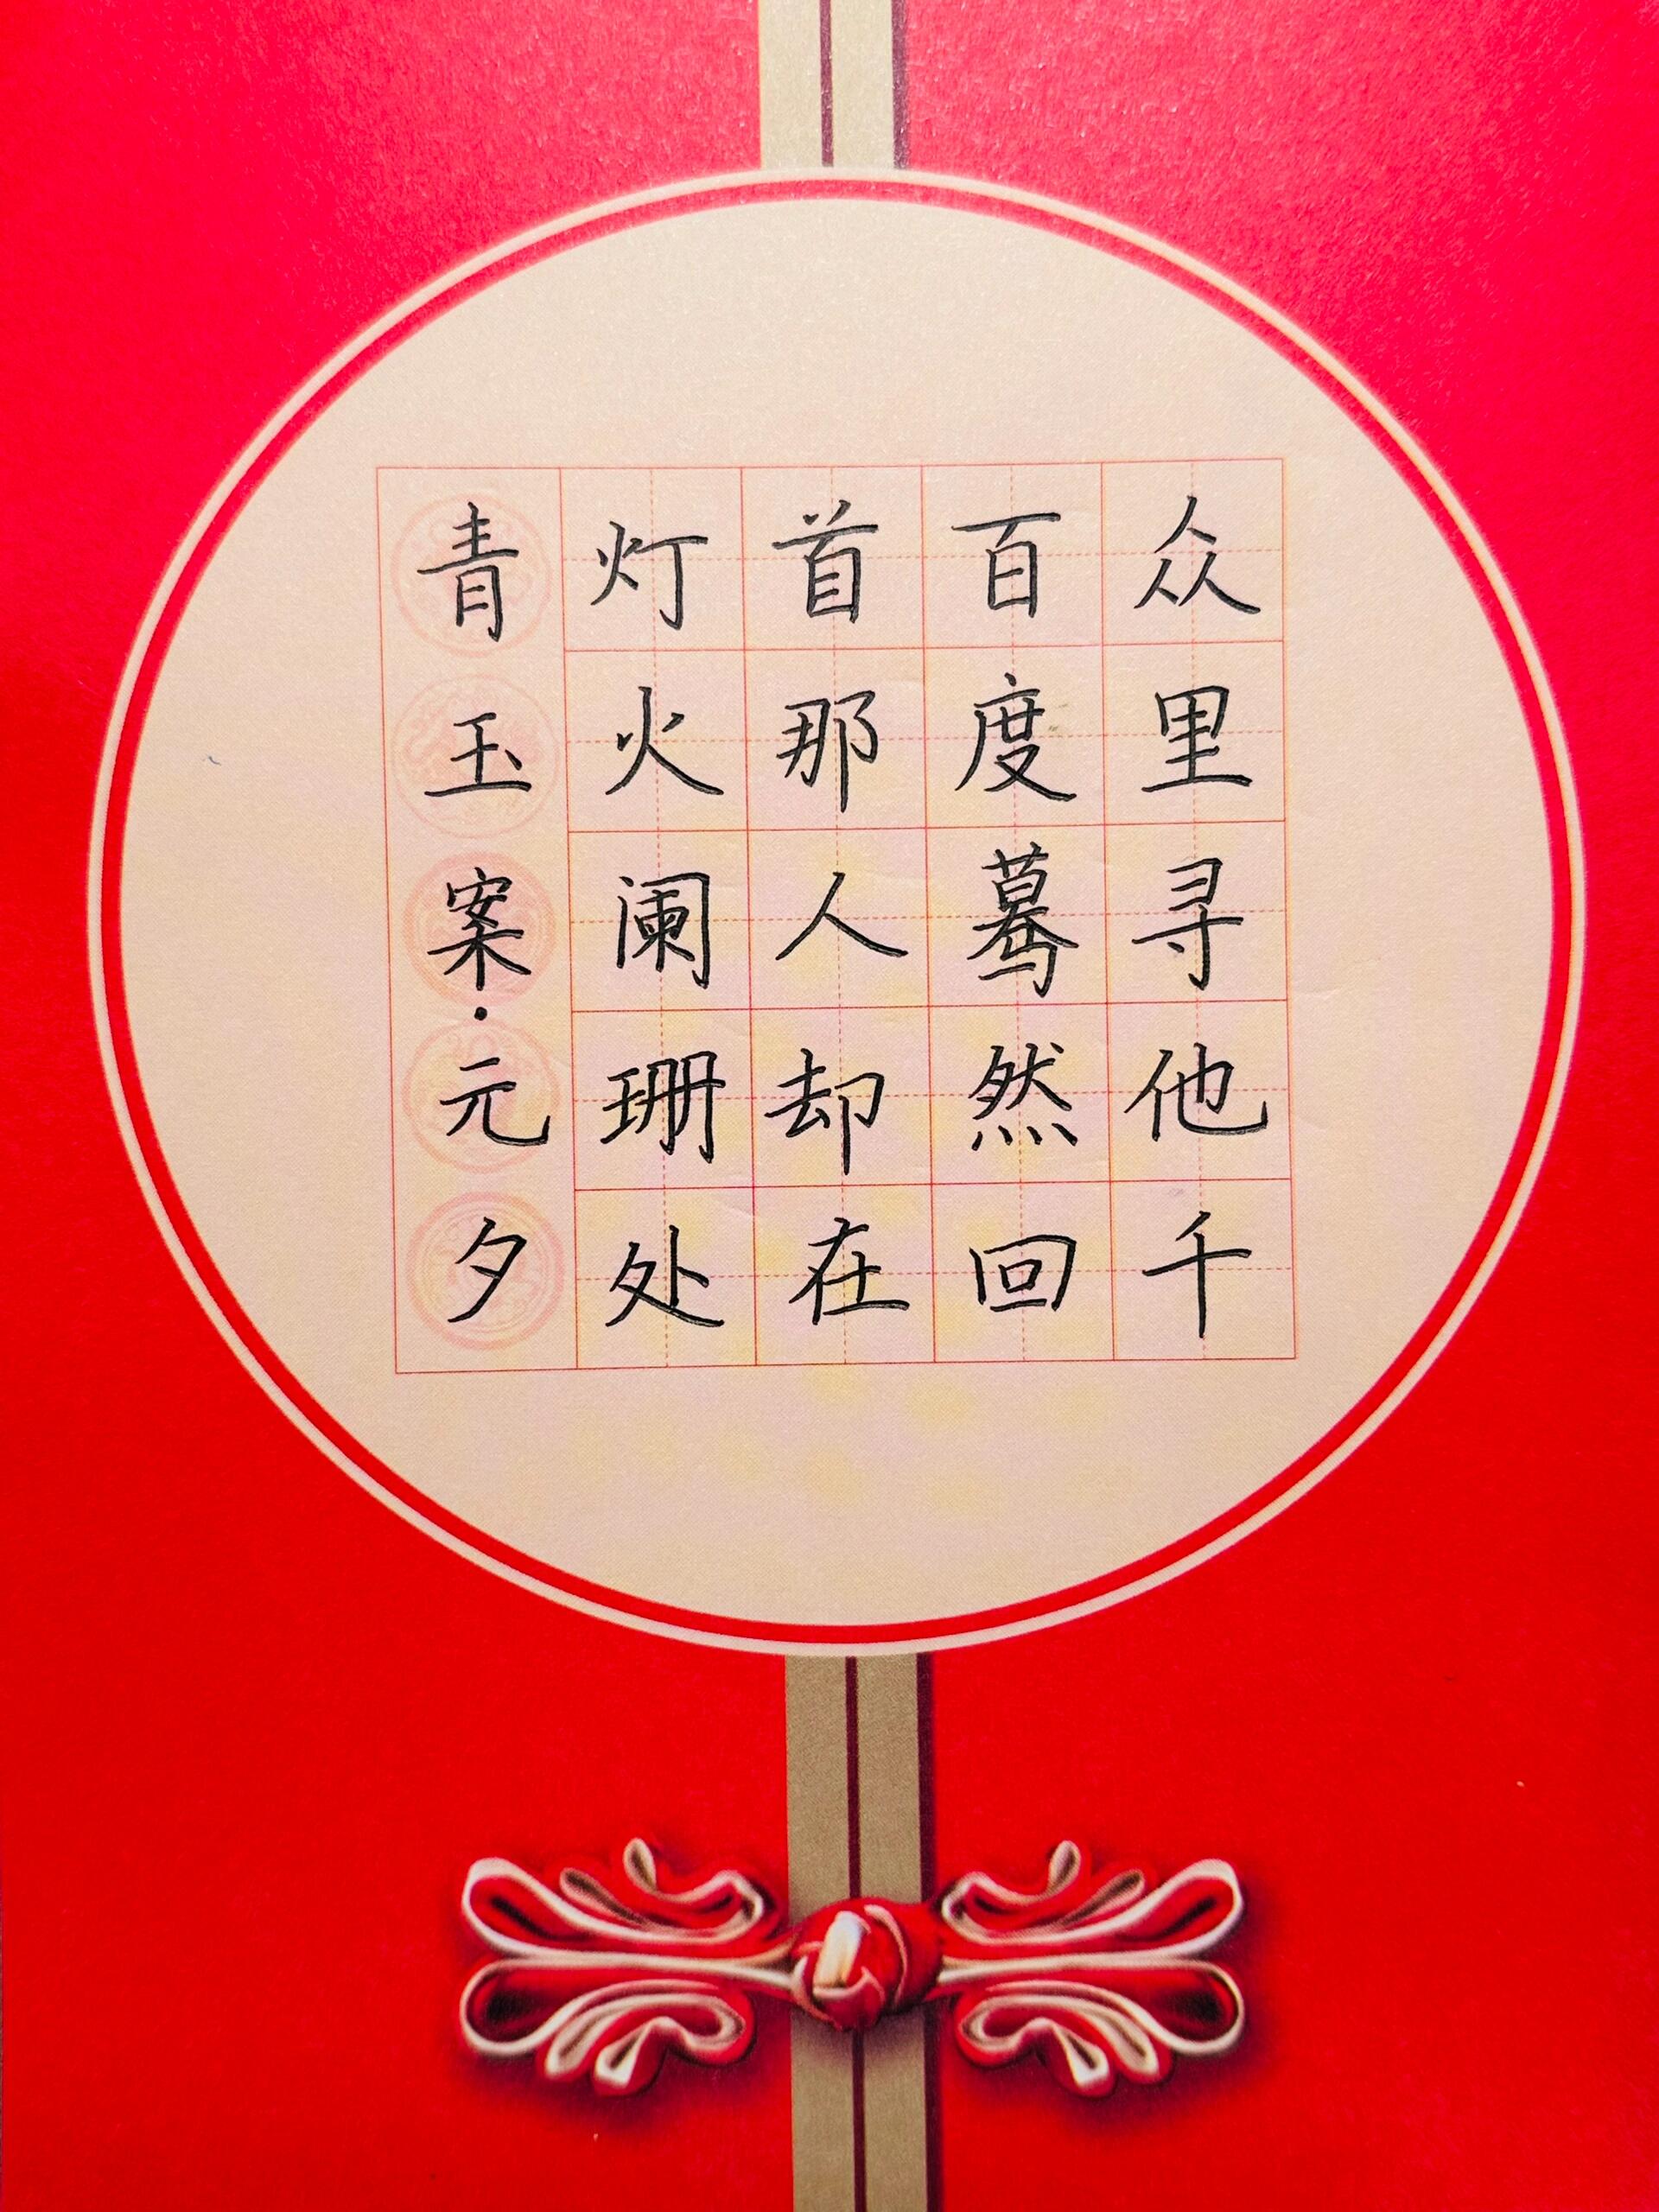 众里寻他千
百度蓦然回
首那人却在
灯火阑珊处
青玉案·元夕